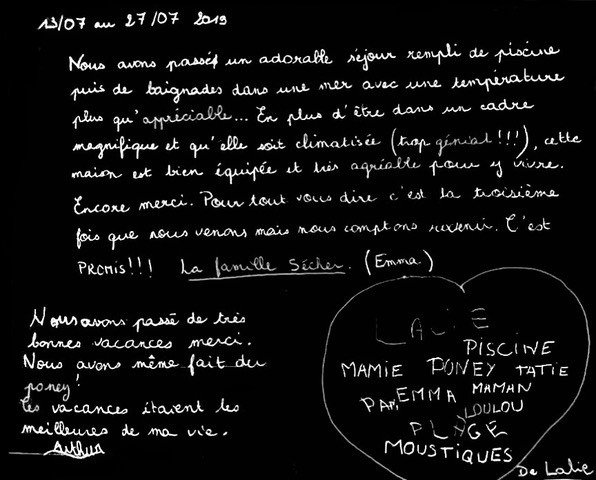 13/07 au 27/07 2019
Nous avons passés un adorable séjour rempli de piscine
puis de baignades dans une mer avec une température
plus qu'appréciable... En plus d'être dans un cadre
magnifique et qu'elle soit climatisée (trop génial!!!), cette
maison est bien équipée et très agréable pour y vivre.
Encore merci. Pour tout vous dire c'est la troisième
fois que nous venons mais nous comptons revenir. C'est
PROMIS!!! La famille Sécher. (Emma.)
Nous avons passé de très
bonnes vacances merci.
Nous avons même fait du
poney!
les vacances étaient les
meilleures de ma vie.
Arthur
LALIE
PISCINE
MAMIE PONEY TATIE
PAPI EMMA MAMAN
LOULOU
PLAGE
MOUSTIQUES
De Lalie